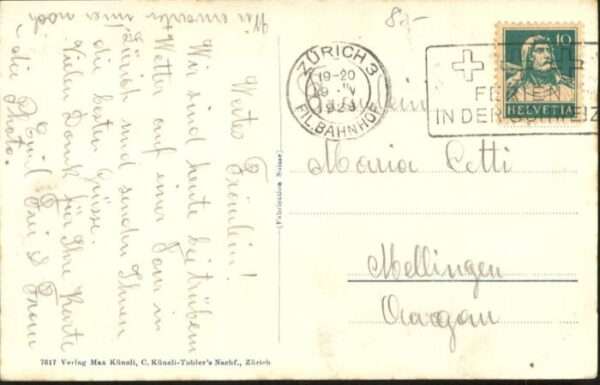 Wertes Fräulein!
Wir sind heute bei trübem
Wetter auf einer Tour in
Zürich und senden Ihnen
die besten Grüsse.
Vielen Dank für Ihre Karte
Emil Frei & Frau
Wir erwarten immer noch
die Photo.
80-
ZÜRICH 3
19-20
1929
FIL. BAHNHOF
10
HELVETIA
FERIEN
IN DER SCHWEIZ
Fräulein
Maria
Mellingen
Aargau
(Fabrication Suisse)
7617 Verlag Max Künzli, C. Künzli-Tobler's Nachf., Zürich